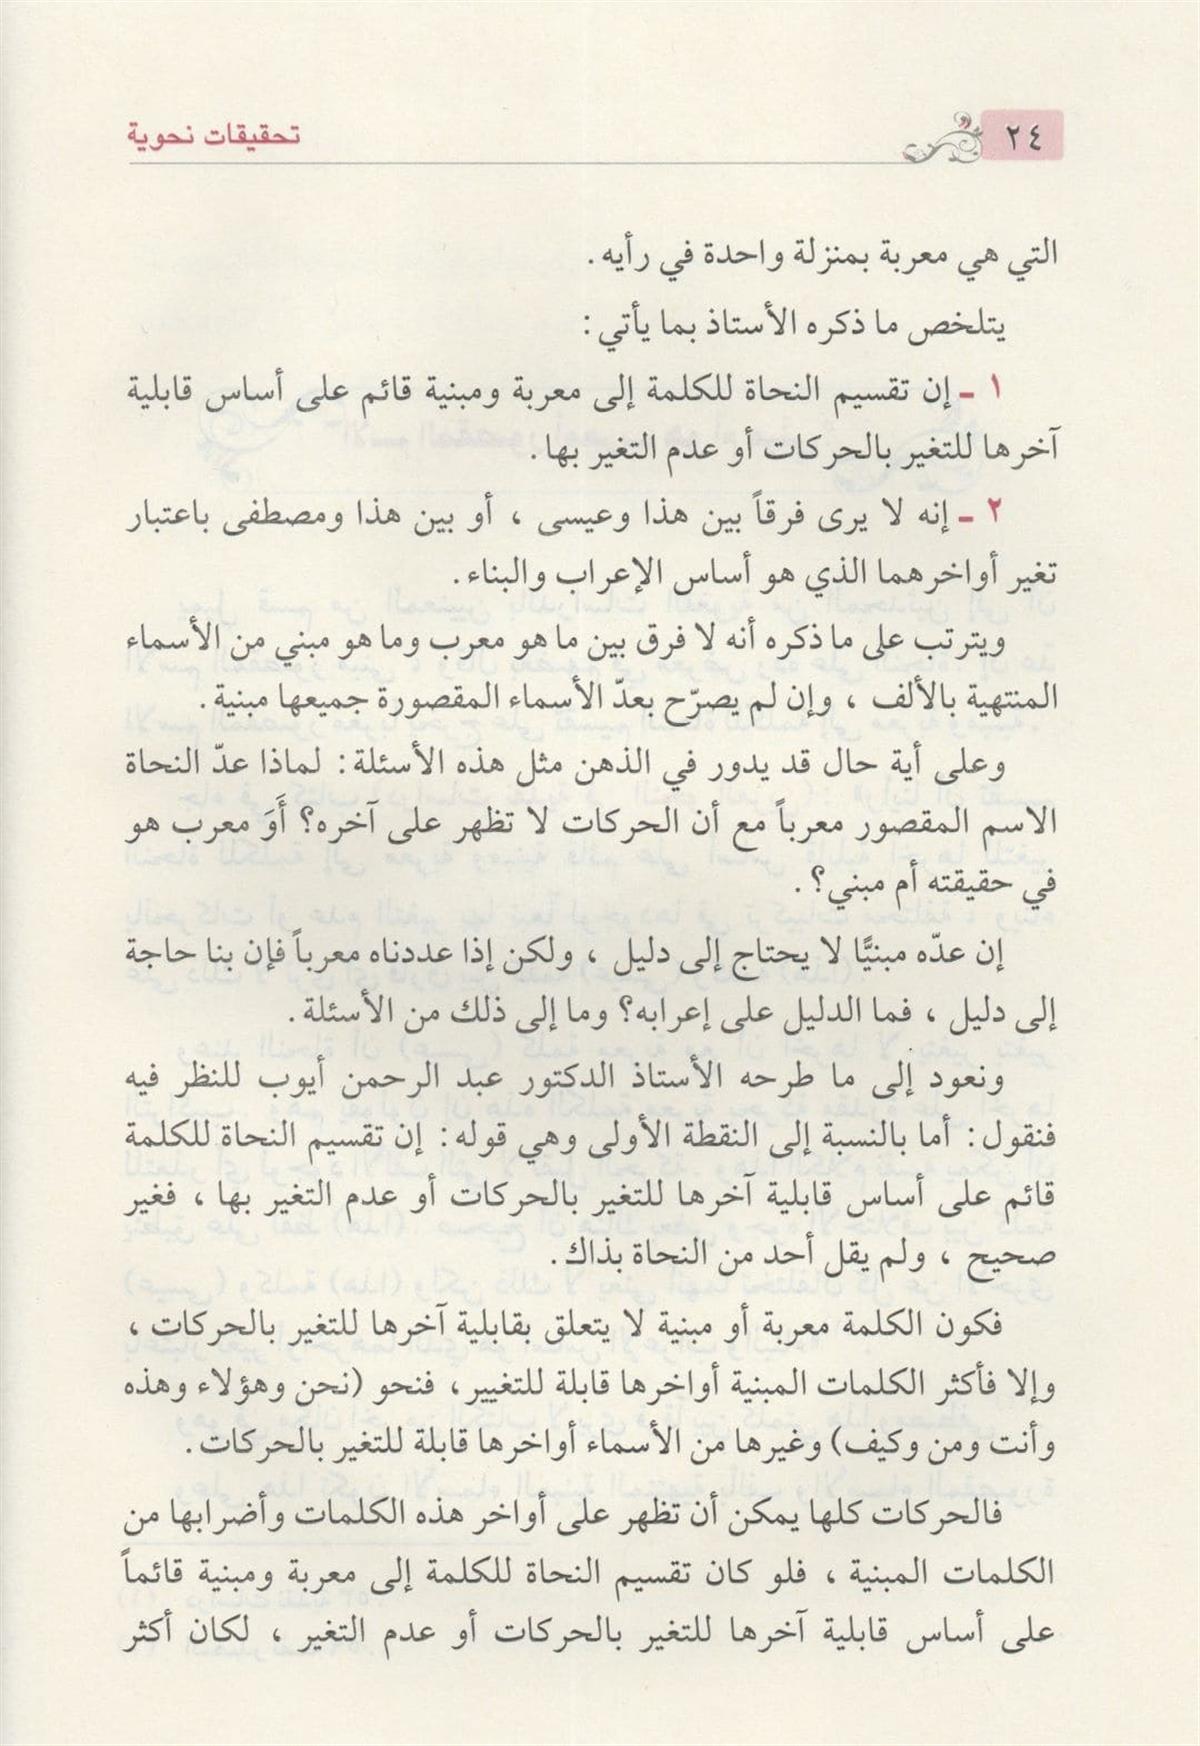 ٢٤
تحقيقات نحوية
التي هي معربة بمنزلة واحدة في رأيه.
يتلخص ما ذكره الأستاذ بما يأتي:
١ - إن تقسيم النحاة للكلمة إلى معربة ومبنية قائم على أساس قابلية
آخرها للتغير بالحركات أو عدم التغير بها.
٢ - إنه لا يرى فرقاً بين هذا وعيسى ، أو بين هذا ومصطفى باعتبار
تغير أواخرهما الذي هو أساس الإعراب والبناء.
ويترتب على ما ذكره أنه لا فرق بين ما هو معرب وما هو مبني من الأسماء
المنتهية بالألف ، وإن لم يصرّح بعدّ الأسماء المقصورة جميعها مبنية.
وعلى أية حال قد يدور في الذهن مثل هذه الأسئلة: لماذا عدّ النحاة
الاسم المقصور معرباً مع أن الحركات لا تظهر على آخره؟ أَوَ معرب هو
في حقيقته أم مبني؟ .
إن عدّه مبنيًّا لا يحتاج إلى دليل ، ولكن إذا عددناه معرباً فإن بنا حاجة
إلى دليل ، فما الدليل على إعرابه؟ وما إلى ذلك من الأسئلة.
ونعود إلى ما طرحه الأستاذ الدكتور عبد الرحمن أيوب للنظر فيه
فنقول: أما بالنسبة إلى النقطة الأولى وهي قوله: إن تقسيم النحاة للكلمة
قائم على أساس قابلية آخرها للتغير بالحركات أو عدم التغير بها ، فغير
صحيح ، ولم يقل أحد من النحاة بذاك.
فكون الكلمة معربة أو مبنية لا يتعلق بقابلية آخرها للتغير بالحركات ،
وإلا فأكثر الكلمات المبنية أواخرها قابلة للتغيير، فنحو (نحن وهؤلاء وهذه
وأنت ومن وكيف) وغيرها من الأسماء أواخرها قابلة للتغير بالحركات.
فالحركات كلها يمكن أن تظهر على أواخر هذه الكلمات وأضرابها من
الكلمات المبنية ، فلو كان تقسيم النحاة للكلمة إلى معربة ومبنية قائماً
على أساس قابلية آخرها للتغير بالحركات أو عدم التغير ، لكان أكثر